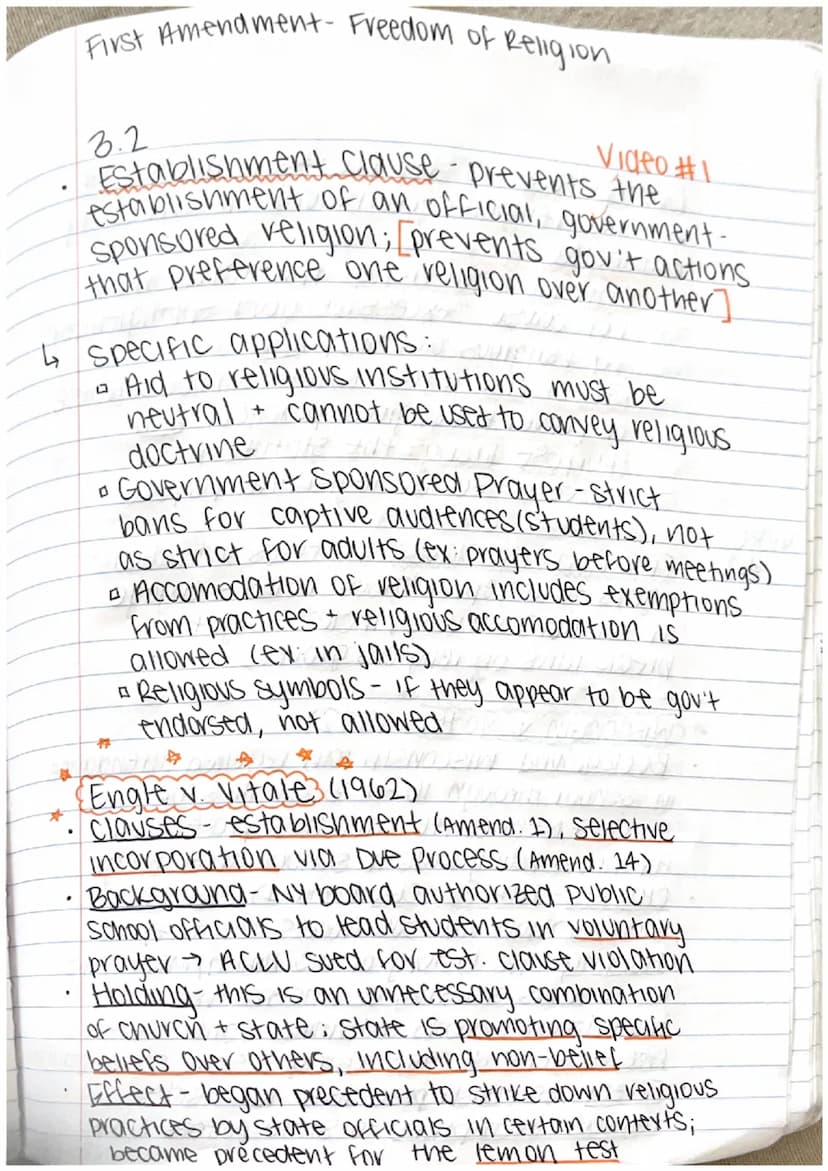 First Amendment - Freedom of Religion
3.2
Video #1
• Establishment Clause - prevents the
establishment of an official, government-
sponsored religion; [prevents gov't actions
that preference one religion over another]
↳ specific applications:
▫ Aid to religious institutions must be
neutral + cannot be used to convey religious
doctrine
▫ Government Sponsored Prayer - strict
bans for captive audiences (students), not
as strict for adults (ex: prayers before meetings)
▫ Accomodation of religion includes exemptions
from practices + religious accomodation is
allowed (ex: in jails)
▫ Religious symbols - if they appear to be gov't
endorsed, not allowed
Engle v. Vitale (1962)
• clauses - establishment (Amend. 1), selective
incorporation via Due Process (Amend. 14)
• Background - NY board authorized public
school officials to lead students in voluntary
prayer → ACLU sued for est. clause violation
• Holding - this is an unnecessary combination
of church + state; state is promoting specific
beliefs over others, including non-belief
• Effect - began precedent to strike down religious
practices by state officials in certain contexts;
became precedent for the lemon test